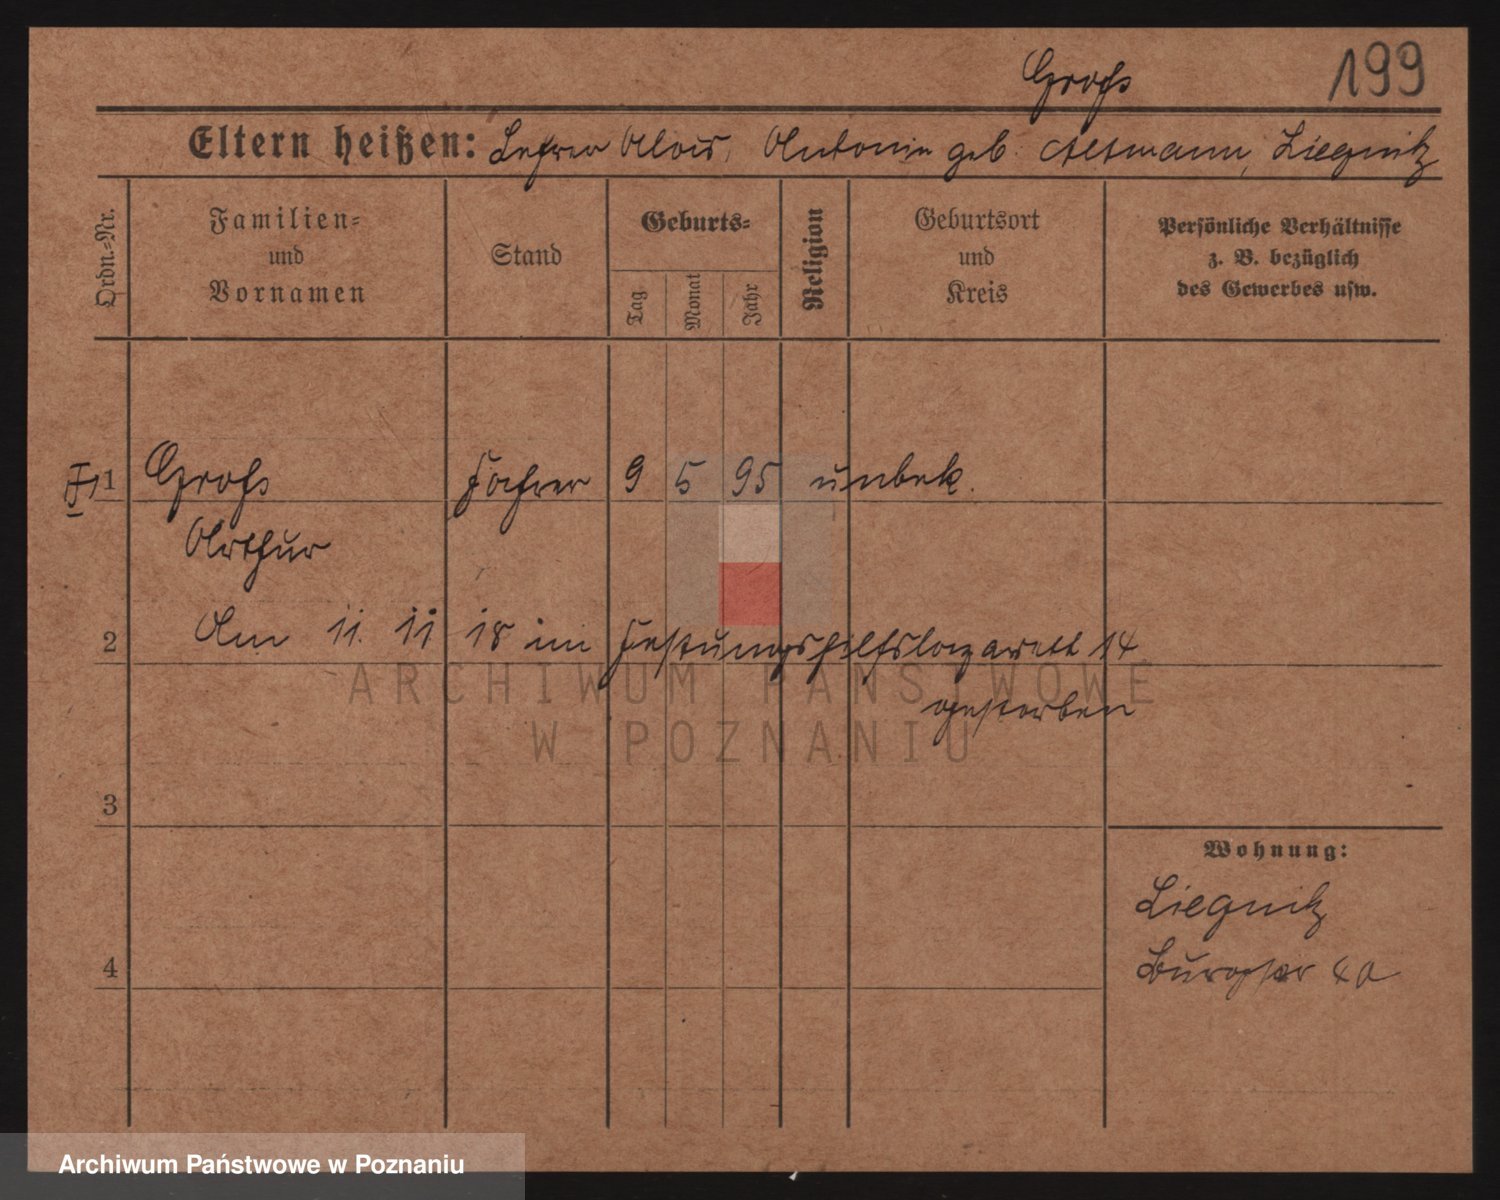 Groß
199
Eltern heißen: Lehrer Alois, Antonie geb. Altmann, Liegnitz
Ordn.=Nr.
Familien=
und
Vornamen
Stand
Geburts=
Tag
Monat
Jahr
Religion
Geburtsort
und
Kreis
Persönliche Verhältnisse
z. B. bezüglich
des Gewerbes usw.
1 Groß Fahrer 9 5 95 unbek.
Arthur
2 Am 11. 11 18 im Festungshilfslazarett 14
gestorben
3
4
Wohnung:
Liegnitz
ARCHIWUM PAŃSTWOWE
W POZNANIU
Archiwum Państwowe w Poznaniu